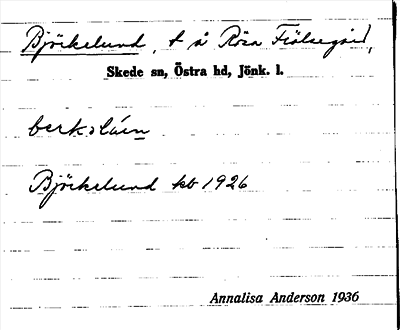 Björkelund, t å Röza Fiälsegård,
Skede sn, Östra hd, Jönk. l.
bœrkəlún
Björkelund kb 1926
Annalisa Anderson 1936